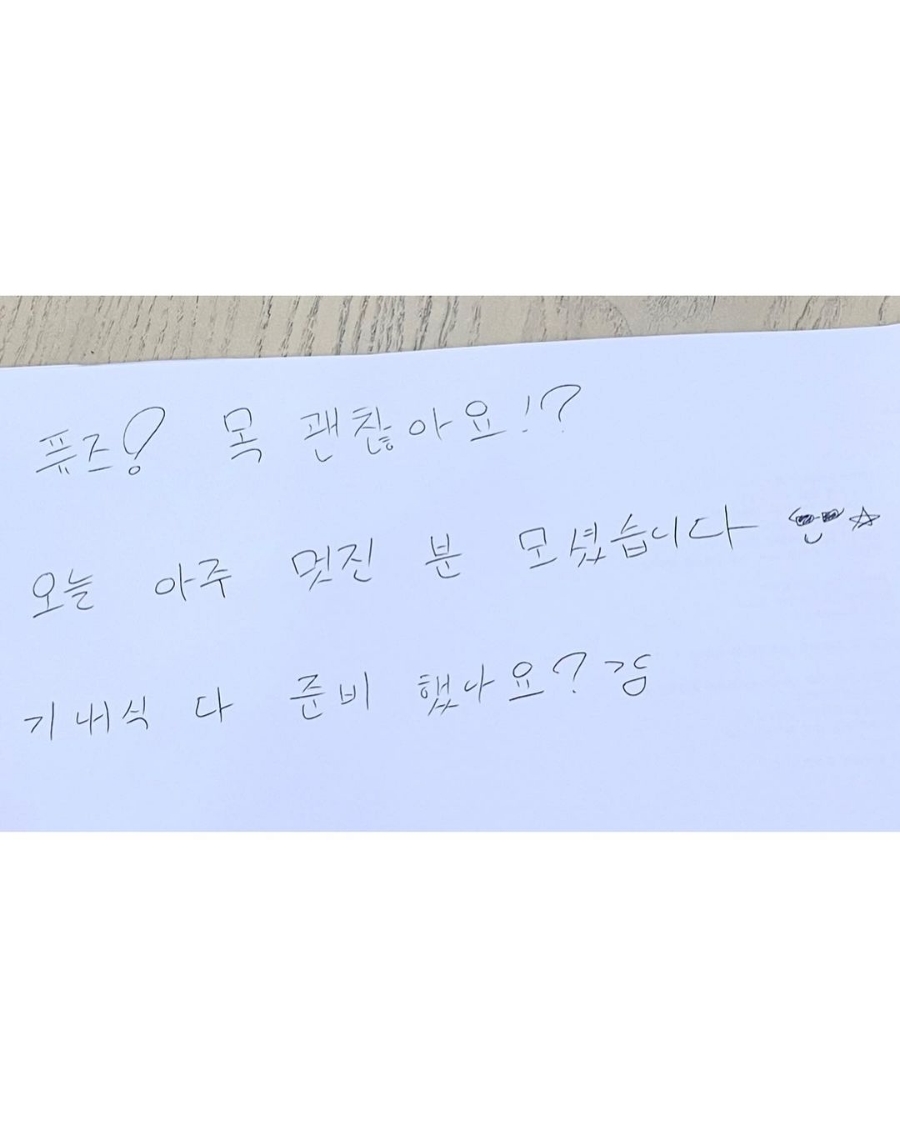 퓨즈! 목 괜찮아요!?
오늘 아주 멋진 분 모셨습니다
기내식 다 준비 했나요?